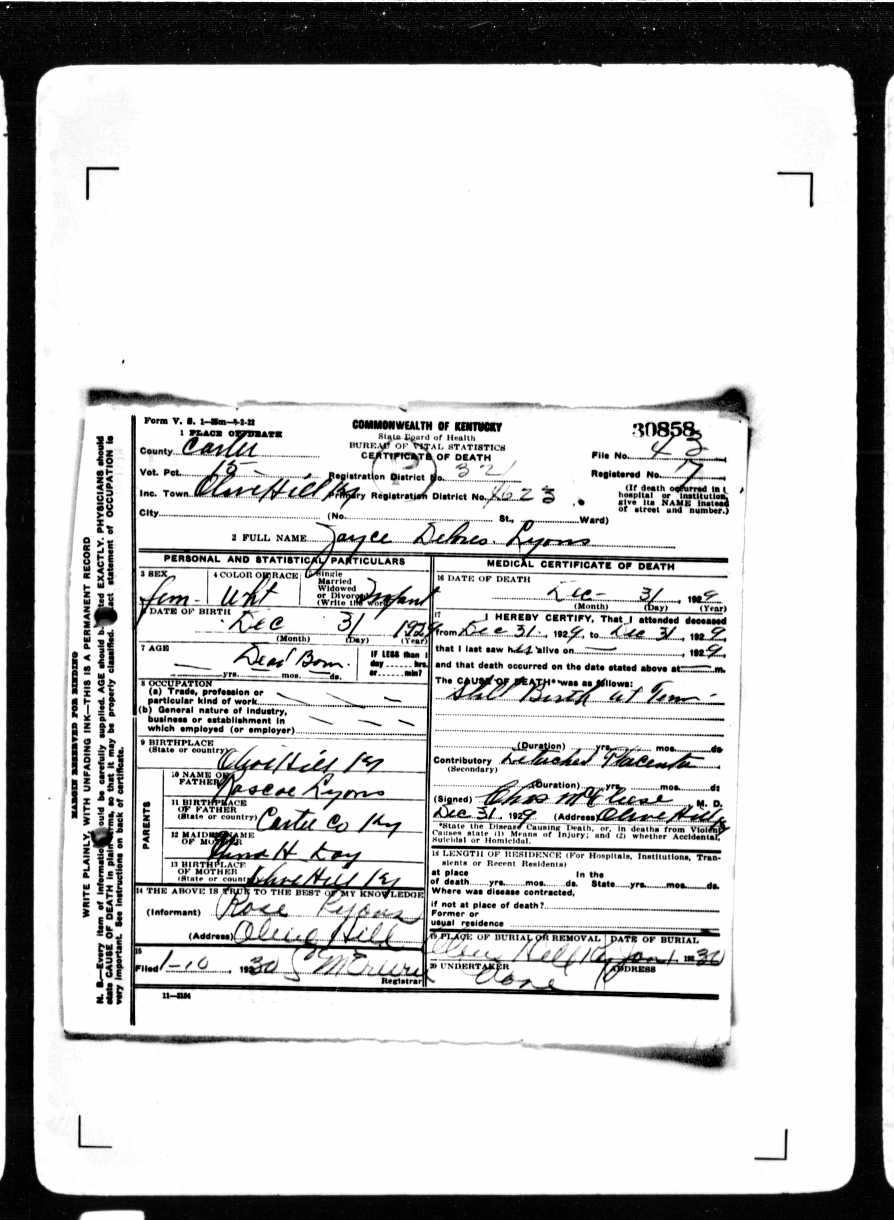 Form V. S. 1—35m—4-2-22
1 PLACE OF DEATH
COMMONWEALTH OF KENTUCKY
State Board of Health
BUREAU OF VITAL STATISTICS
CERTIFICATE OF DEATH
30858
County Carter
File No. 43
Vot. Pct. 15
Registration District No. 321
Registered No. 17
Inc. Town Olive Hill Ky
Primary Registration District No. 4623
(If death occurred in a
hospital or institution,
give its NAME instead
of street and number.)
City (No. St., Ward)
2 FULL NAME Joyce Delores Lyons
PERSONAL AND STATISTICAL PARTICULARS
3 SEX
fem-
4 COLOR OR RACE
Wht
5 Single
Married
Widowed
or Divorced
(Write the word)
Infant
DATE OF BIRTH
Dec 31 1929
(Month) (Day) (Year)
7 AGE
Dead Born
yrs. mos. ds.
IF LESS than 1
day hrs.
or min?
8 OCCUPATION
(a) Trade, profession or
particular kind of work
(b) General nature of industry,
business or establishment in
which employed (or employer)
9 BIRTHPLACE
(State or country)
Olive Hill Ky
PARENTS
10 NAME OF
FATHER
Roscoe Lyons
11 BIRTHPLACE
OF FATHER
(State or country) Carter Co Ky
12 MAIDEN NAME
OF MOTHER
H Day
13 BIRTHPLACE
OF MOTHER
(State or country) Olive Hill Ky
14 THE ABOVE IS TRUE TO THE BEST OF MY KNOWLEDGE
(Informant) Rose Lyons
(Address) Olive Hill
15
Filed 1-10, 1930
Registrar
11—3184
MEDICAL CERTIFICATE OF DEATH
16 DATE OF DEATH
Dec- 31, 1929
(Month) (Day) (Year)
17
I HEREBY CERTIFY, That I attended deceased
from Dec 31, 1929, to Dec 31, 1929
that I last saw h alive on —, 1929,
and that death occurred on the date stated above at — m.
The CAUSE OF DEATH* was as follows:
Still Birth at Term
(Duration) yrs. mos. ds
Contributory Detached Placenta
(Secondary)
(Duration) yrs. mos. ds
(Signed) Chas M. D.
Dec 31, 1929 (Address) Olive Hill Ky
*State the Disease Causing Death, or, in deaths from Violent
Causes state (1) Means of Injury; and (2) whether Accidental,
Suicidal or Homicidal.
18 LENGTH OF RESIDENCE (For Hospitals, Institutions, Tran-
sients or Recent Residents)
at place In the
of death yrs. mos. ds. State yrs. mos. ds.
Where was disease contracted,
if not at place of death?
Former or
usual residence
19 PLACE OF BURIAL OR REMOVAL
Olive Hill Ky
DATE OF BURIAL
Jan 1 1930
20 UNDERTAKER
None
ADDRESS
MARGIN RESERVED FOR BINDING
WRITE PLAINLY, WITH UNFADING INK—THIS IS A PERMANENT RECORD
N. B.—Every item of information should be carefully supplied. AGE should be stated EXACTLY. PHYSICIANS should
state CAUSE OF DEATH in plain terms, so that it may be properly classified. Exact statement of OCCUPATION is
very important. See instructions on back of certificate.